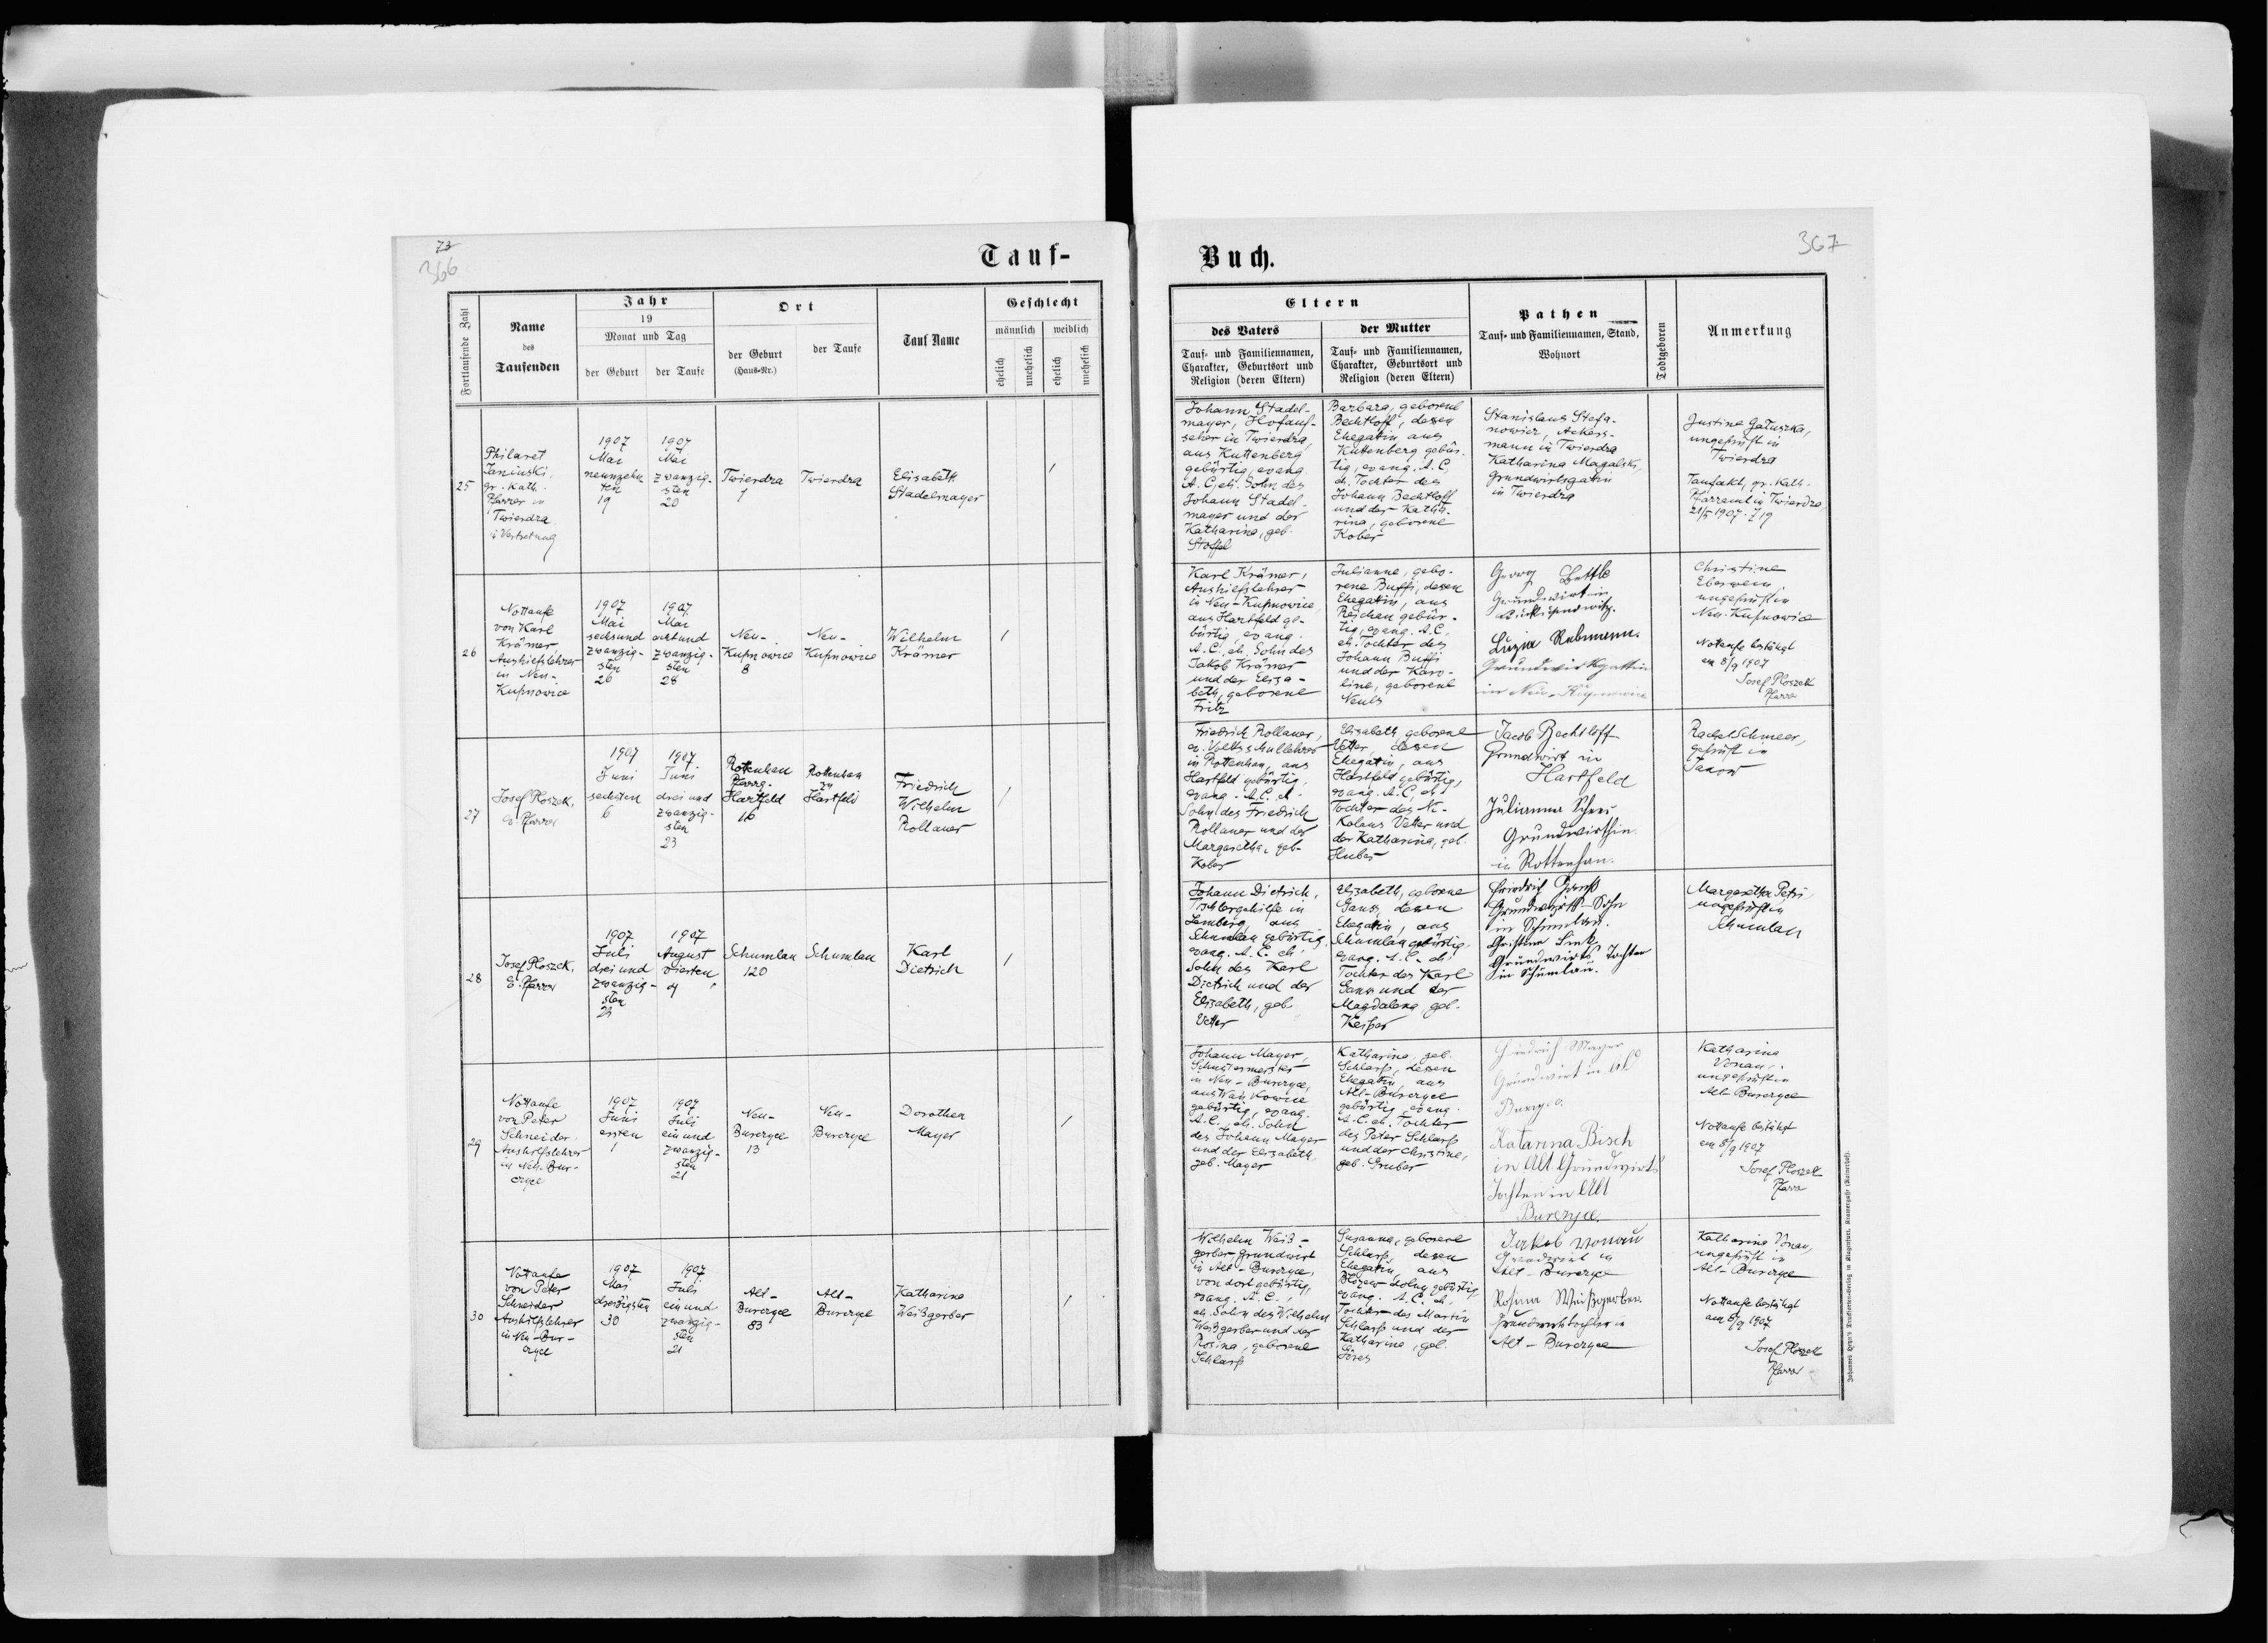 73
366
Tauf-
Fortlaufende Zahl
Name
des
Taufenden
Jahr
19
Monat und Tag
der Geburt
der Taufe
Ort
der Geburt
(Haus-Nr.)
der Taufe
Tauf Name
Geschlecht
männlich
weiblich
ehelich
unehelich
ehelich
unehelich
25
Philaret
gr. Kath.
Pfarrer in
Twierdza
in Vertretung
1907
Mai
neunzehn
ten
19
1907
Mai
zwanzig-
sten
20
Twierdza
1
Twierdza
Elisabeth
Stadelmayer
26
Nottaufe
von Karl
Krämer
Aushilfslehrer
in Neu-
Kupnowice
1907
Mai
sechsund
zwanzig-
sten
26
1907
Mai
achtund
zwanzig-
sten
28
Neu-
Kupnowice
8
Neu-
Kupnowice
Wilhelm
Krämer
27
Josef Ploszek,
ev. Pfarrer
1907
Juni
sechsten
6
1907
Juni
drei und
zwanzig-
sten
23
Rottenhan
Hartfeld
16
Rottenhan
zu
Hartfeld
Friedrich
Wilhelm
Rollauer
28
Josef Ploszek,
ev. Pfarrer
1907
Juli
drei und
zwanzig-
sten
23
1907
August
vierten
4
Schumlau
120
Schumlau
Karl
Dietrich
29
Nottaufe
von Peter
Schneider
Aushilfslehrer
in Neu-Bur-
czyce
1907
Juni
ersten
1
1907
Juli
ein und
zwanzig-
sten
21
Neu-
Burczyce
13
Neu-
Burczyce
Dorothea
Mayer
30
Nottaufe
von Peter
Schneider
Aushilfslehrer
in Neu-Bur-
czyce
1907
Mai
dreißigsten
30
1907
Juli
ein und
zwanzig-
sten
21
Alt-
Burczyce
83
Alt-
Burczyce
Katharina
Weißgerber
Buch.
367
Eltern
des Vaters
Tauf- und Familiennamen,
Charakter, Geburtsort und
Religion (deren Eltern)
der Mutter
Tauf- und Familiennamen,
Charakter, Geburtsort und
Religion (deren Eltern)
Pathen
Tauf- und Familiennamen, Stand,
Wohnort
Todtgeboren
Anmerkung
Johann Stadel-
mayer, Hofauf-
seher in Twierdza,
aus Kuttenberg
gebürtig, evang.
A. C, eh. Sohn des
Johann Stadel-
mayer und der
Katharina, geb.
Stoffel
Barbara, geborene
Bechtloff, dessen
Ehegatin aus
Kuttenberg gebür-
tig, evang. A. C,
eh. Tochter des
Johann Bechtloff
und der Katha-
rina, geborene
Kober
Stanislaus Stefa-
nowicz, Ackers-
mann in Twierdza
Katharina
Grundwirtsgatin
in Twierdza
Justina Gałuszka,
ungeprüft in
Twierdza
Taufakt, gr. Kath.
Pfarramt in Twierdza
21/5 1907. Z 19
Karl Krämer,
Aushilfslehrer
in Neu-Kupnowice,
aus Hartfeld ge-
bürtig, evang.
A. C., eh. Sohn des
Jakob Krämer
und der Elisa-
beth, geborene
Fritz
Julianne, gebo-
rene Buffi, dessen
Ehegatin, aus
Reichau gebür-
tig, evang. A.C.
eh. Tochter des
Johann Buffi
und der Karo-
line, geborene
Georg
Grundwirt in
Luzia Rebmann
Grundwirtsgattin
in Neu-Kupnowice
Christine
Eberwein
ungeprüft in
Neu-Kupnowice
Nottaufe bestätigt
am 8/9 1907
Josef Ploszek
Pfarrer
Friedrich Rollauer,
ev. Volksschullehrer
in Rottenhan, aus
Hartfeld gebürtig,
evang. A.C. eh.
Sohn des Friedrich
Rollauer und der
Margaretha, geb.
Kober
Elisabeth, geborene
Vetter, dessen
Ehegatin, aus
Hartfeld gebürtig,
evang. A.C, eh.
Tochter des Ni-
kolaus Vetter und
der Katharina, geb.
Huber
Jacob Bechtloff
Grundwirt in
Hartfeld
Julianna
Grundwirthin
in Rottenhan.
Rachel Schmeer,
geprüft in
Janow
Johann Dietrich,
Tischlergehilfe in
Lemberg, aus
Schumlau gebürtig,
evang. A. C. eh.
Sohn des Karl
Dietrich und der
Elisabeth, geb.
Vetter
Elisabeth, geborene
Ganz, dessen
Ehegatin, aus
Schumlau gebürtig,
evang. A. C. eh.
Tochter des Karl
Ganz und der
Magdalena, geb.
Friedrich
Grundwirts-Sohn
in Schumlau.
Christina Link
Grundwirts Tochter
in Schumlau.
Margaretha Petri
ungeprüft in
Schumlau
Johann Mayer,
Schustermeister
in Neu-Burczyce,
gebürtig, evang.
A.C. eh. Sohn
des Johann Mayer
und der Elisabeth,
geb. Mayer
Katharina, geb.
Schlarp, dessen
Ehegatin, aus
Alt-Burczyce
gebürtig, evang.
A.C. eh. Tochter
des Peter Schlarp
und der Christine,
geb. Gruber
Friedrich Mayer
Grundwirt in Alt
Katarina Bisch
in Alt Grundwirts
Tochter in Alt
Burczyce.
Katharina
Vonau,
ungeprüft in
Alt-Burczyce
Nottaufe bestätigt
am 8/9 1907
Josef Ploszek
Pfarrer
Wilhelm Weiß-
gerber Grundwirt
in Alt-Burczyce,
von dort gebürtig,
evang. A.C.,
eh. Sohn des Wilhelm
Weißgerber und der
Rosina, geborene
Schlarp
Susanna, geborene
Schlarp, dessen
Ehegatin, aus
gebürtig,
evang. A.C. eh.
Tochter des Martin
Schlarp und der
Katharina, geb.
Jakob Vonau
Grundwirt in
Alt-Burczyce
Rosina Weißgerber
Grundwirtstochter in
Alt-Burczyce
Katharina Vonau,
ungeprüft in
Alt-Burczyce
Nottaufe bestätigt
am 8/9 1907
Josef Ploszek
Pfarrer